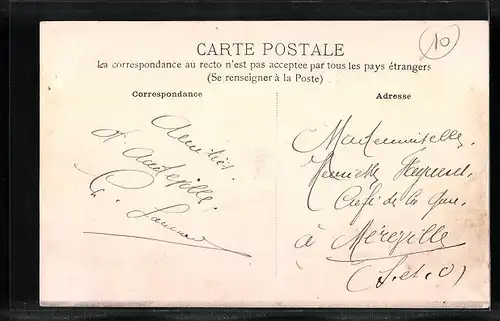 CARTE POSTALE
La correspondance au recto n'est pas acceptee par tous les pays étrangers
(Se renseigner à la Poste)
10
Correspondance
Amitiés
d'Audeville.
G.
Adresse
Mademoiselle
Henriette
Café de la Gare,
à Méréville
(S.et.O)